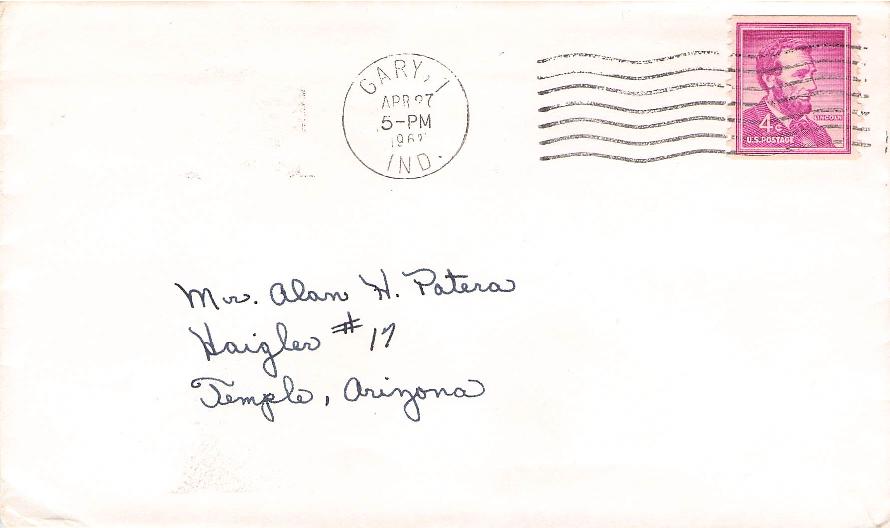 GARY, 1
APR 27
5-PM
IND.
4¢
LINCOLN
U.S. POSTAGE
Mr. Alan H. Patera
Haigler #17
Temple, Arizona